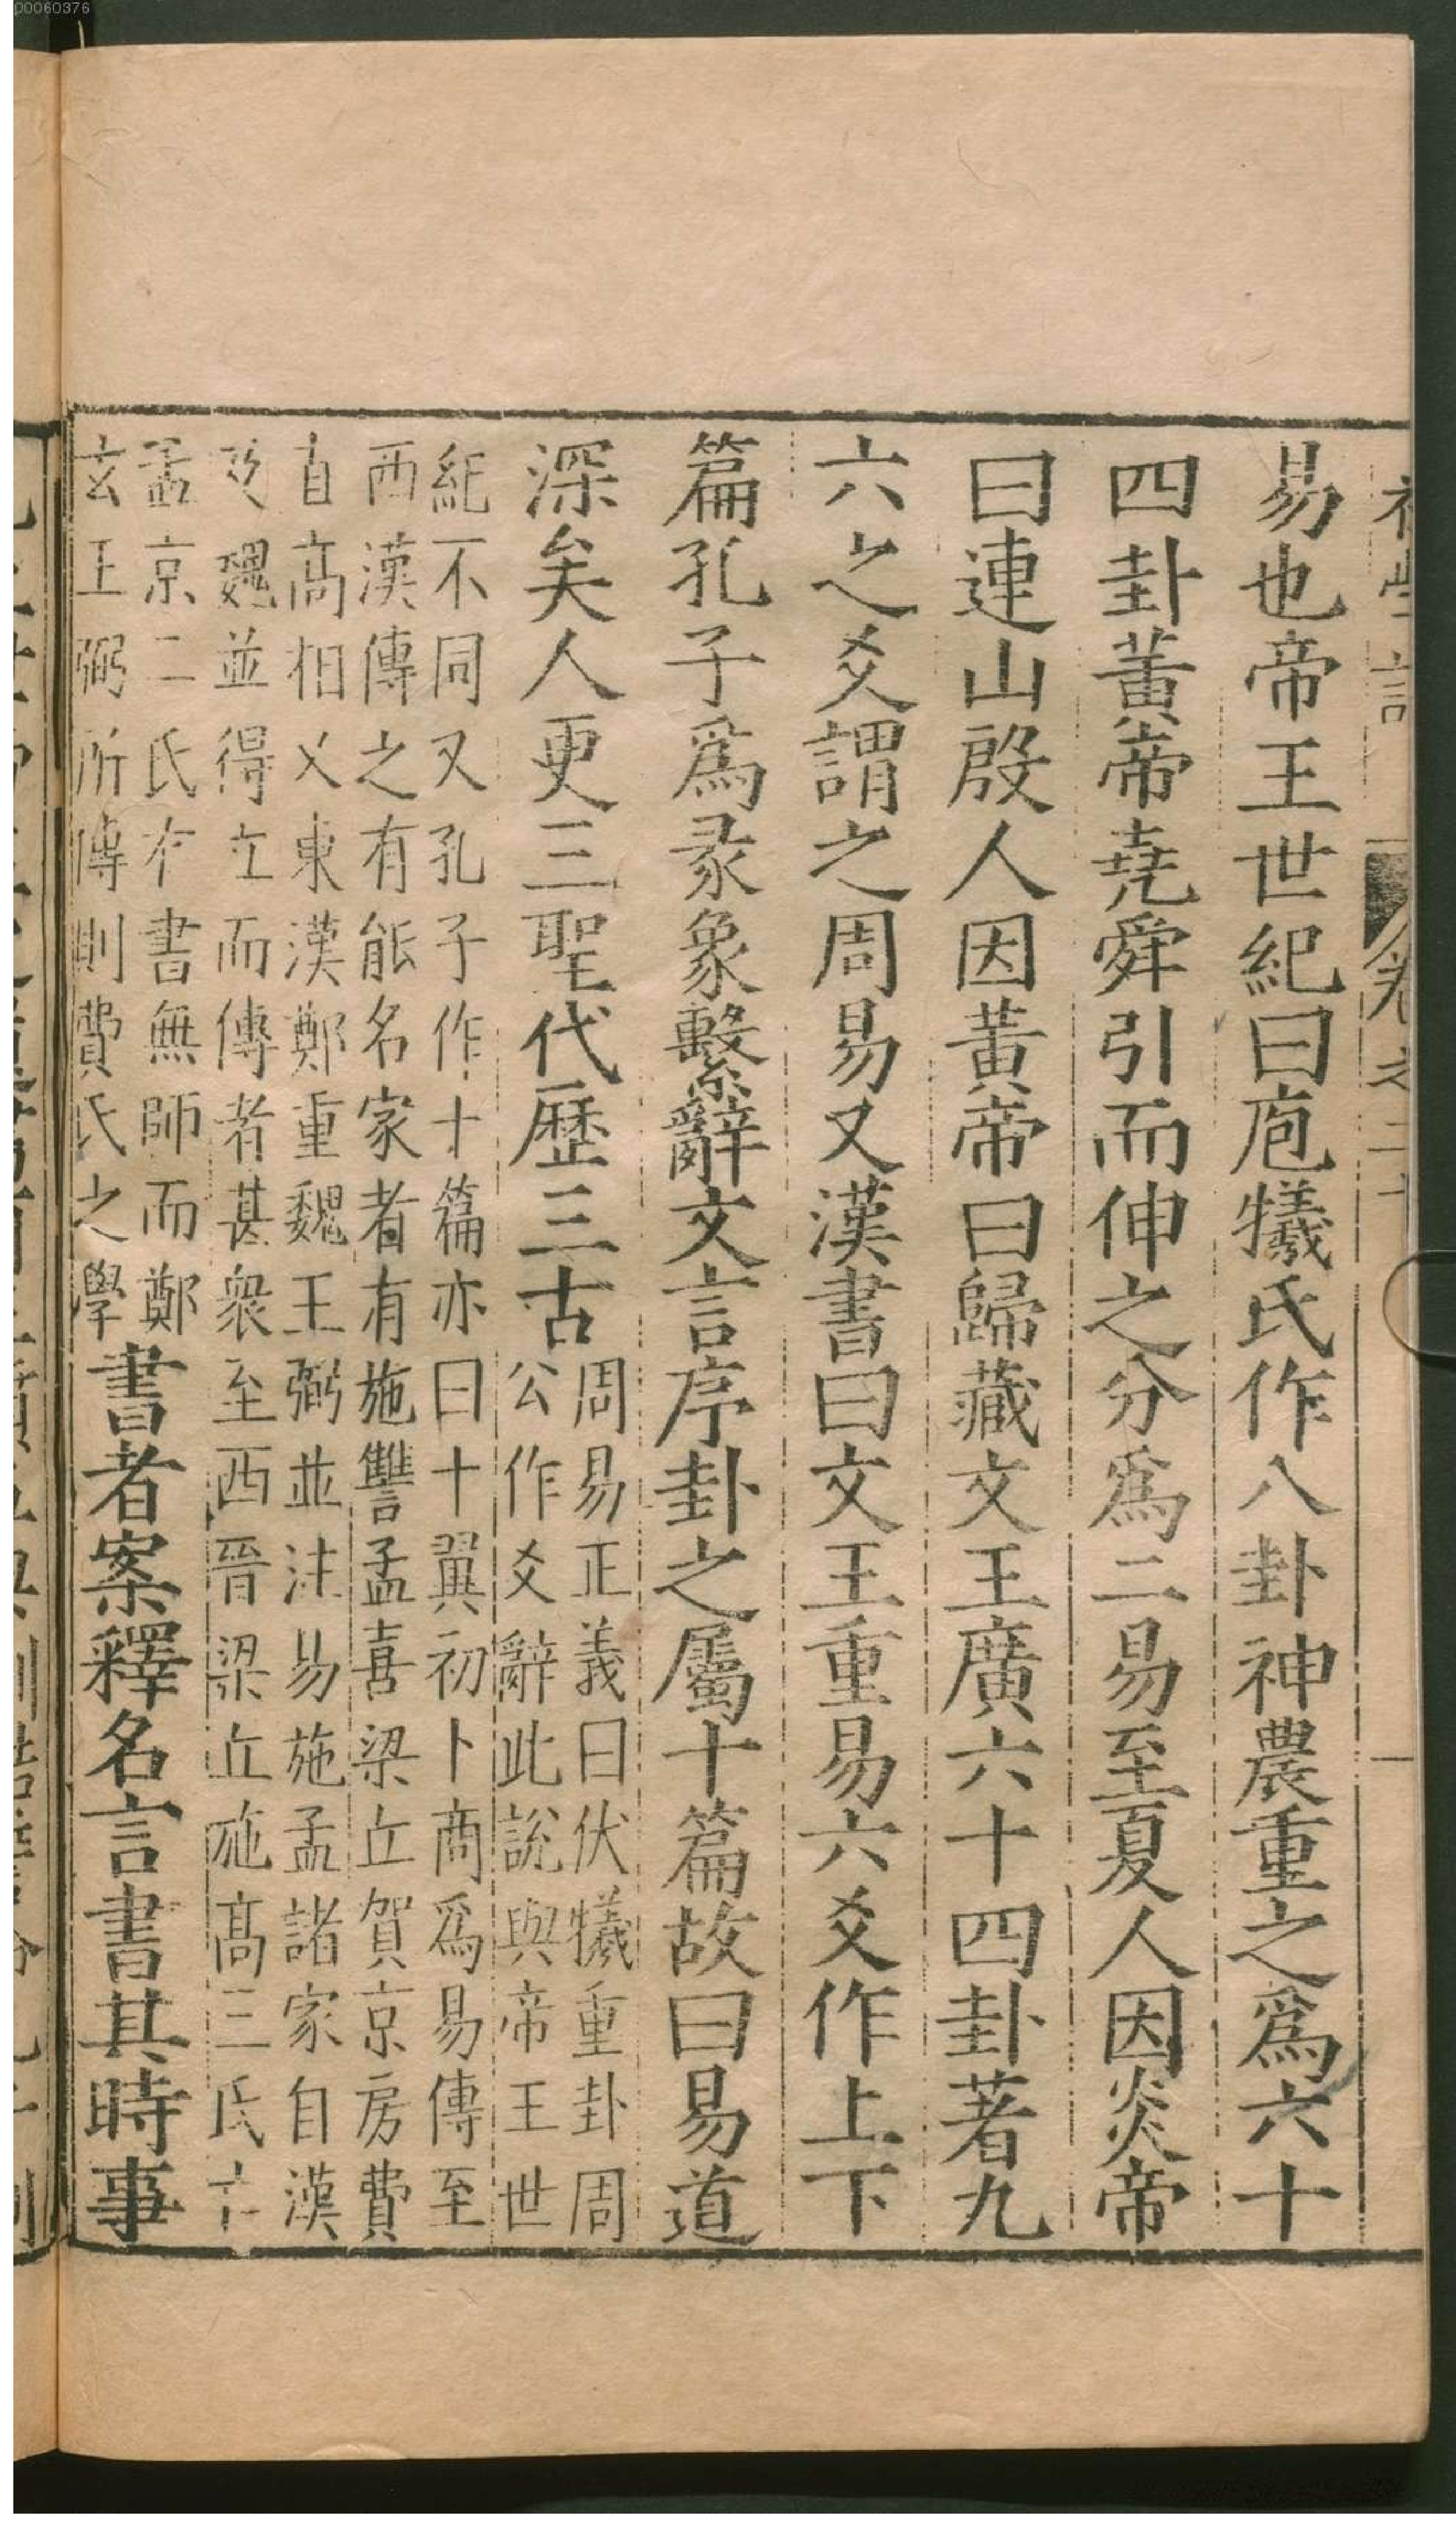 00060376
卷之二十
易也帝王世紀曰庖犧氏作八卦神農重之爲六十
四卦黃帝堯舜引而伸之分爲二易至夏人因炎帝
曰連山殷人因黃帝曰歸藏文王廣六十四卦著九
六之爻謂之周易又漢書曰文王重易六爻作上下
篇孔子爲彖象繫辭文言序卦之屬十篇故曰易道
深矣人更三聖代歷三古
周易正義曰伏犧重卦周
公作爻辭此說與帝王世
紀不同又孔子作十篇亦曰十翼初卜商爲易傳至
西漢傳之有能名家者有施讐孟喜梁丘賀京房費
直高相又東漢鄭重魏王弼並注易施孟諸家自漢
及魏並得立而傳者甚衆至西晉梁丘施高三氏亡
孟京二氏有書無師而鄭
玄王弼所傳則費氏之學
書者案釋名言書其時事